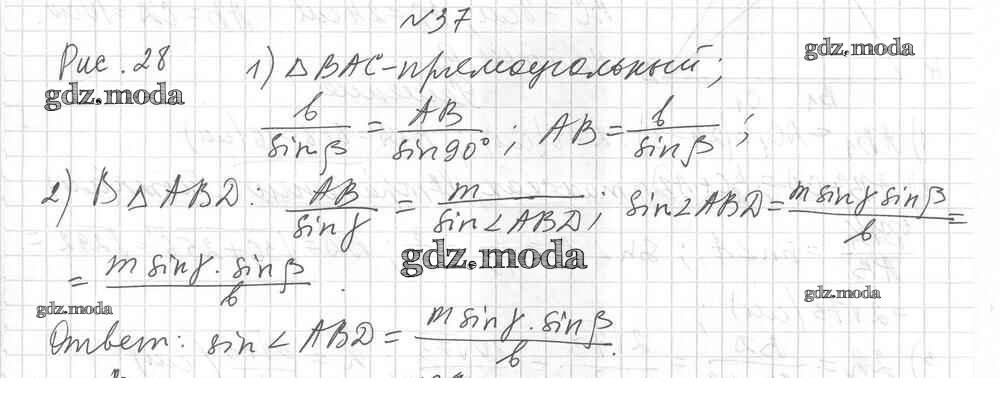 №37
Рис. 28 1) △BAC-прямоугольный;
gdz.moda
gdz.moda
b/sinβ = AB/sin90°; AB = b/sinβ;
2) В △ABD: AB/sinγ = m/sin∠ABD; sin∠ABD = m sinγ sinβ/b =
gdz.moda
= m sinγ · sinβ/b.
gdz.moda
gdz.moda
Ответ: sin∠ABD = m sinγ · sinβ/b.